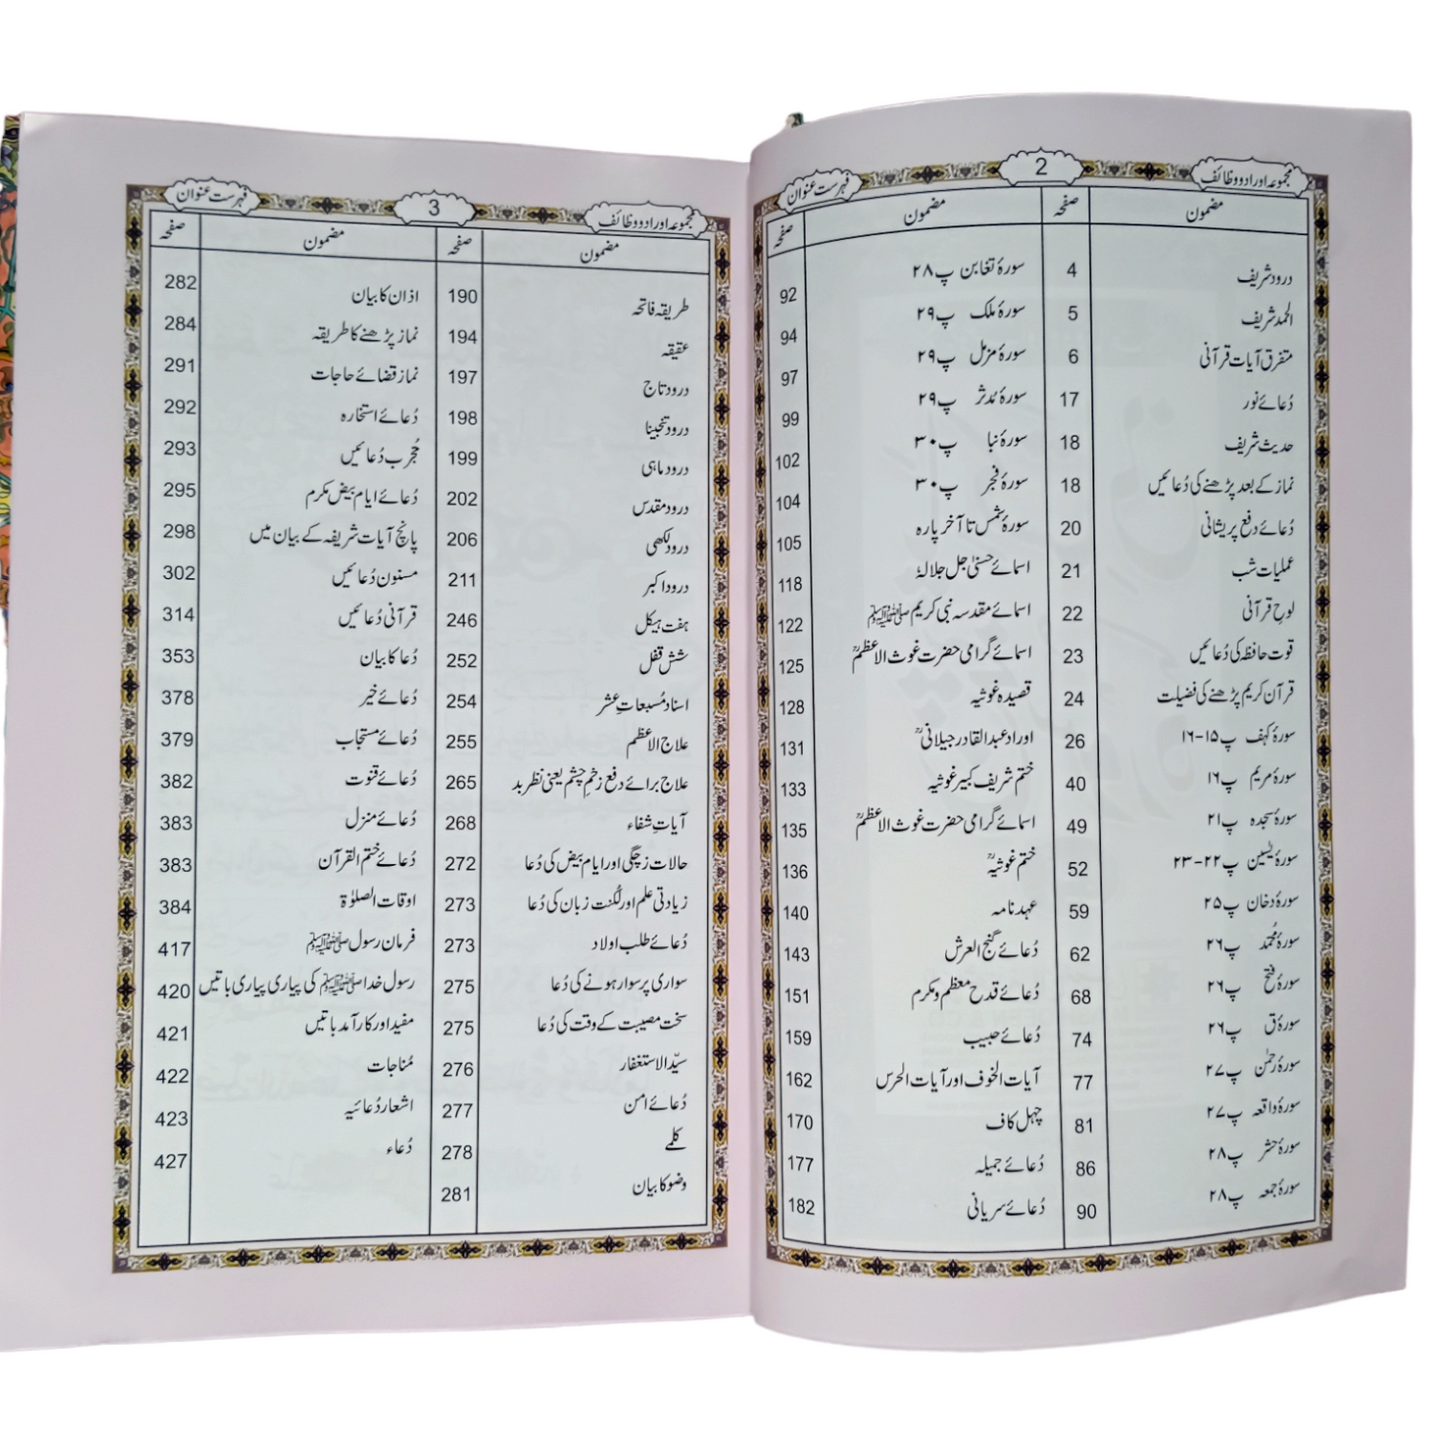 مجموعہ اوراد و وظائف 2 فہرست عنوان
مضمون صفحہ مضمون صفحہ
درود شریف 4 سورۂ تغابن پ۲۸ 92
الحمد شریف 5 سورۂ ملک پ۲۹ 94
متفرق آیات قرآنی 6 سورۂ مزمل پ۲۹ 97
دُعائے نور 17 سورۂ مُدثر پ۲۹ 99
حدیث شریف 18 سورۂ نبا پ۳۰ 102
نماز کے بعد پڑھنے کی دُعائیں 18 سورۂ فجر پ۳۰ 104
دُعائے دفع پریشانی 20 سورۂ شمس تا آخر پارہ 105
عملیات شب 21 اسمائے حسنیٰ جل جلالہٗ 118
لوحِ قرآنی 22 اسمائے مقدسہ نبی کریم ﷺ 122
قوت حافظہ کی دُعائیں 23 اسمائے گرامی حضرت غوث الاعظمؒ 125
قرآن کریم پڑھنے کی فضیلت 24 قصیدہ غوثیہ 128
سورۂ کہف پ۱۵-۱۶ 26 اوراد عبدالقادر جیلانیؒ 131
سورۂ مریم پ۱۶ 40 ختم شریف کبیر غوثیہ 133
سورۂ سجدہ پ۲۱ 49 اسمائے گرامی حضرت غوث الاعظمؒ 135
سورۂ یٰسین پ۲۲-۲۳ 52 ختم غوثیہؒ 136
سورۂ دخان پ۲۵ 59 عہد نامہ 140
سورۂ محُمد پ۲۶ 62 دُعائے گنج العرش 143
سورۂ فتح پ۲۶ 68 دُعائے قدح معظم و مکرم 151
سورۂ ق پ۲۶ 74 دُعائے حبیب 159
سورۂ رحمٰن پ۲۷ 77 آیات الخوف اور آیات الحرس 162
سورۂ واقعہ پ۲۷ 81 چہل کاف 170
سورۂ حشر پ۲۸ 86 دُعائے جمیلہ 177
سورۂ جمعہ پ۲۸ 90 دُعائے سریانی 182
مجموعہ اوراد و وظائف 3 فہرست عنوان
مضمون صفحہ مضمون صفحہ
طریقہ فاتحہ 190 اذان کا بیان 282
عقیقہ 194 نماز پڑھنے کا طریقہ 284
درود تاج 197 نماز قضائے حاجات 291
درود تنجینا 198 دُعائے استخارہ 292
درود ماہی 199 مُجرب دُعائیں 293
درود مقدس 202 دُعائے ایام بیض مکرم 295
درود لکھی 206 پانچ آیات شریفہ کے بیان میں 298
درود اکبر 211 مسنون دُعائیں 302
ہفت ہیکل 246 قرآنی دُعائیں 314
شش قفل 252 دُعا کا بیان 353
اسناد مُسبعاتِ عشر 254 دُعائے خیر 378
علاج الاعظم 255 دُعائے مستجاب 379
علاج برائے دفع زخمِ چشم یعنی نظر بد 265 دُعائے قنوت 382
آیاتِ شفاء 268 دُعائے منزل 383
حالات زچگی اور ایام بیض کی دُعا 272 دُعائے ختم القرآن 383
زیادتی علم اور لُکنت زبان کی دُعا 273 اوقات الصلوٰۃ 384
دُعائے طلب اولاد 273 فرمان رسول ﷺ 417
سواری پر سوار ہونے کی دُعا 275 رسول خدا ﷺ کی پیاری پیاری باتیں 420
سخت مصیبت کے وقت کی دُعا 275 مفید اور کارآمد باتیں 421
سیّد الاستغفار 276 مُناجات 422
دُعائے امن 277 اشعار دُعائیہ 423
کلمے 278 دُعاء 427
وضو کا بیان 281